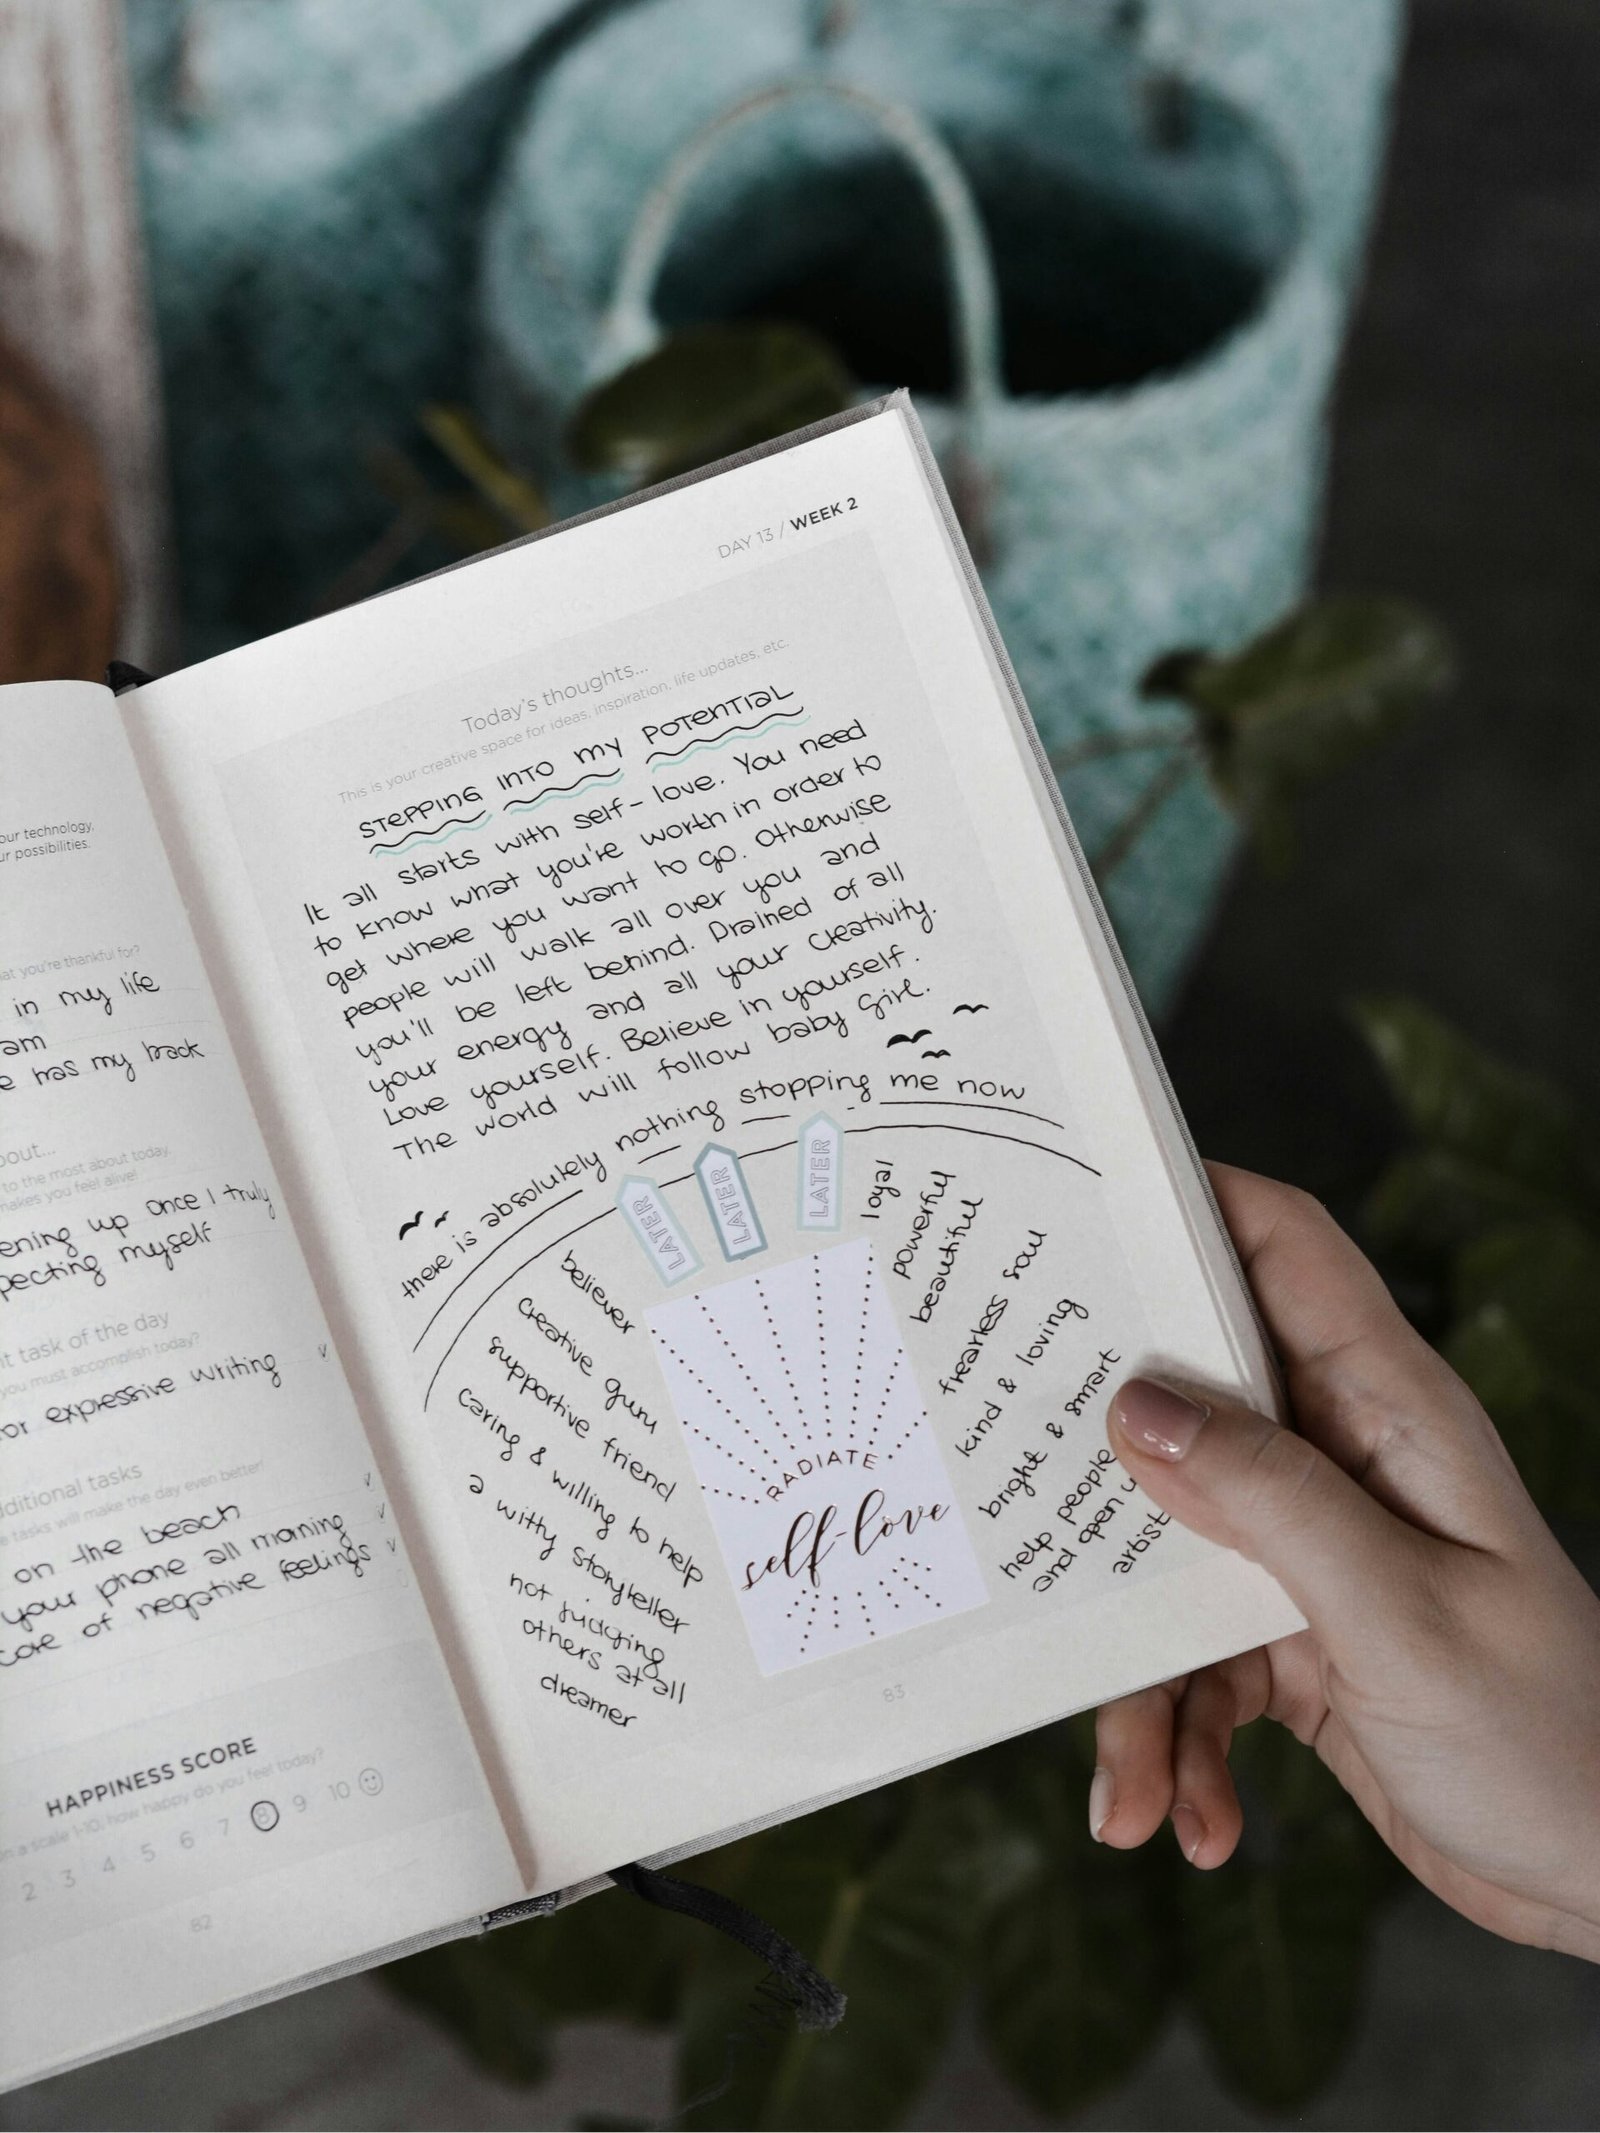 our technology,
ur possibilities.
at you're thankful for?
in my life
am
e has my back
bout...
to the most about today,
makes you feel alive!
ening up once I truly
pecting myself
it task of the day
you must accomplish today?
or expressive writing
dditional tasks
e tasks will make the day even better!
on the beach
your phone all morning
core of negative feelings
HAPPINESS SCORE
on a scale 1-10, how happy do you feel today?
2 3 4 5 6 7 8 9 10
82
DAY 13 / WEEK 2
Today's thoughts...
This is your creative space for ideas, inspiration, life updates, etc.
STEPPING INTO MY POTENTIAL
It all starts with self-love. You need
to know what you're worth in order to
get where you want to go. Otherwise
people will walk all over you and
you'll be left behind. Drained of all
your energy and all your creativity.
Love yourself. Believe in yourself.
The world will follow baby girl.
there is absolutely nothing stopping me now
LATER
LATER
LATER
believer
creative guru
supportive friend
caring & willing to help
a witty storyteller
not judging
others at all
dreamer
loyal
powerful
beautiful
fearless soul
kind & loving
bright & smart
help people
and open u
artist
RADIATE
self-love
83